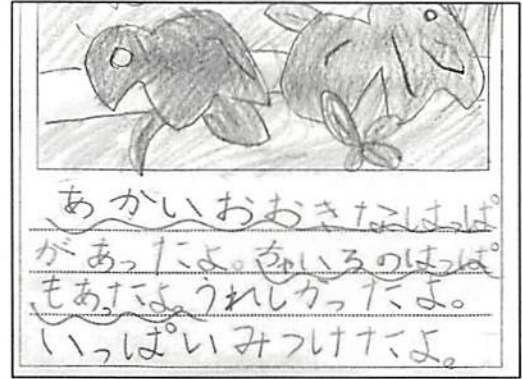 あかいおおきなはっぱ
があったよ。ちゃいろのはっぱ
もあったよ。うれしかったよ。
いっぱいみつけたよ。